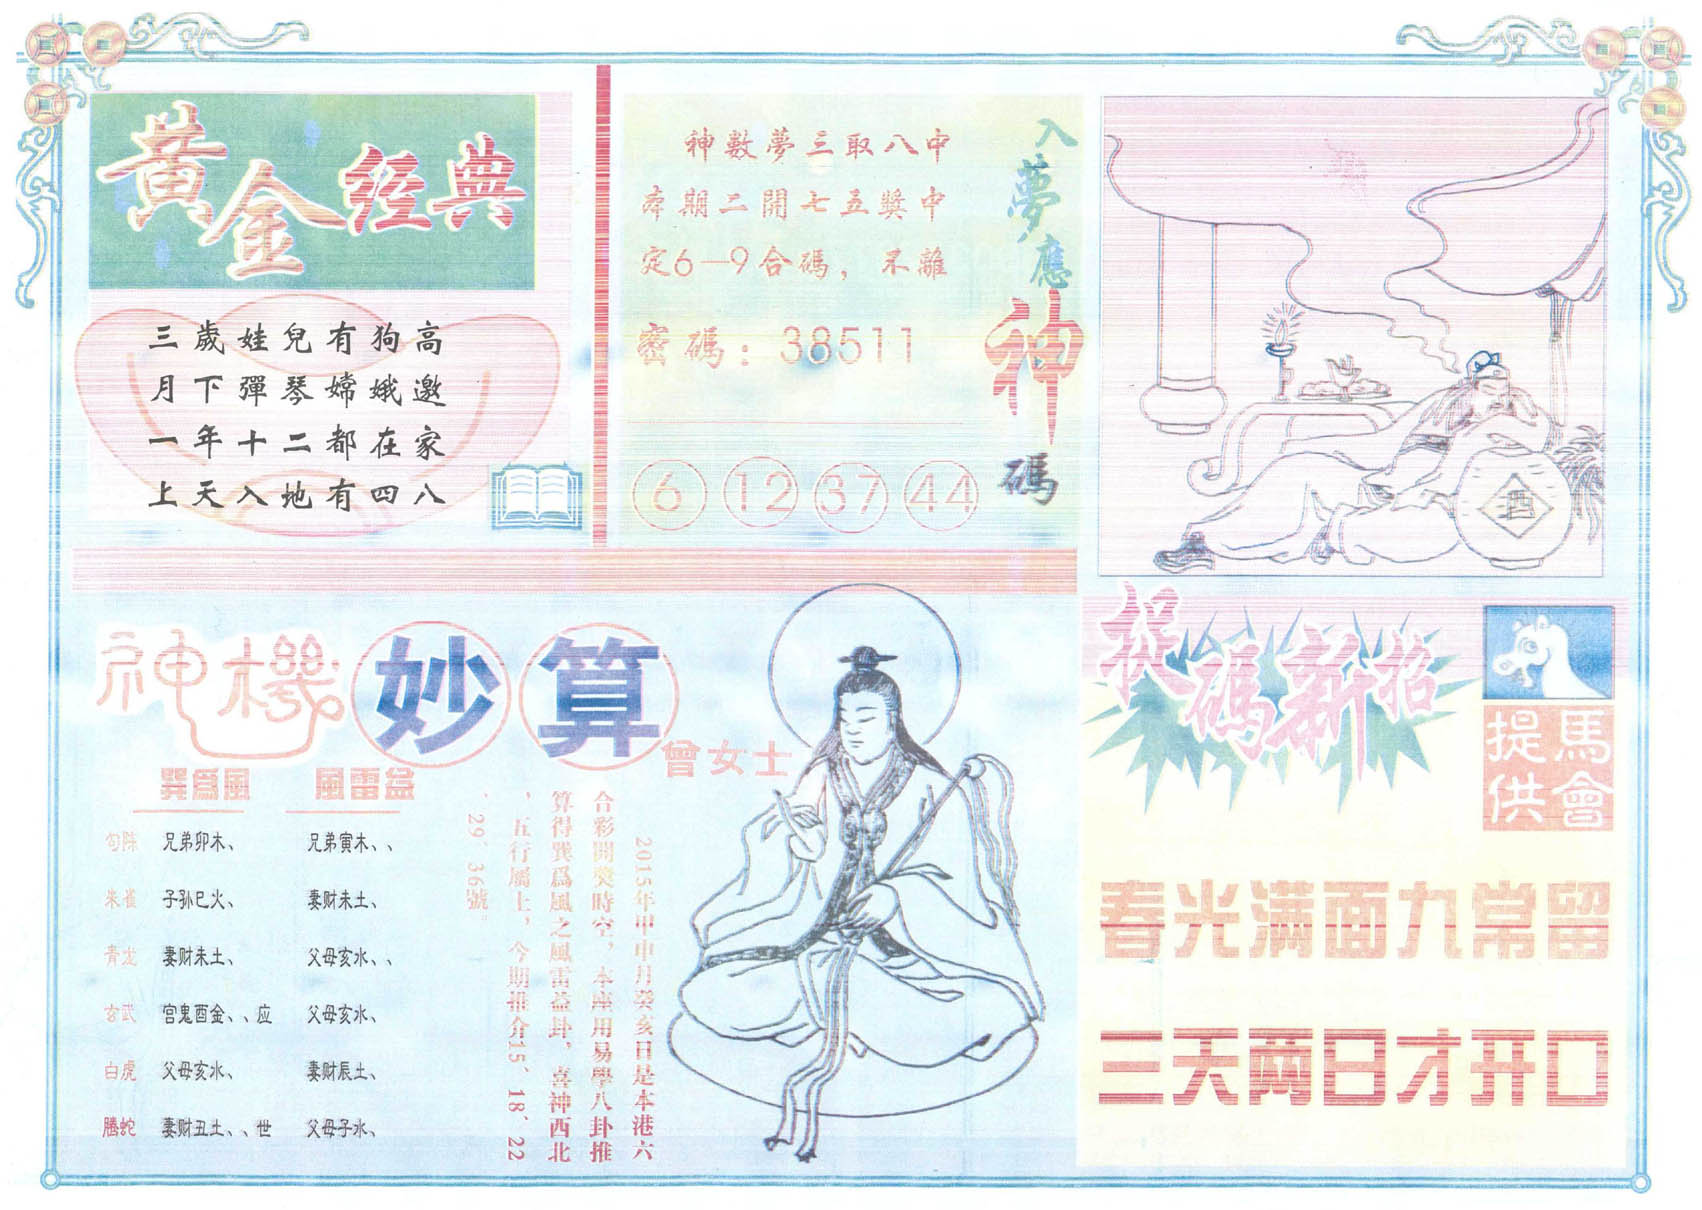 黃金經典
三歲娃兒有狗高
月下彈琴嫦娥邀
一年十二都在家
上天入地有四八
神數夢三取八中
本期二開七五獎中
定6—9合碼，不離
密碼：38511
6 12 37 44
入夢應神碼
酒
神機妙算
曾女士
巽爲風 風雷益
勾陈 兄弟卯木、 兄弟寅木、、
朱雀 子孙巳火、 妻财未土、
青龙 妻财未土、 父母亥水、、
玄武 官鬼酉金、、应 父母亥水、
白虎 父母亥水、 妻财辰土、
腾蛇 妻财丑土、、世 父母子水、
2015年甲申月癸亥日是本港六
合彩開獎時空，本座用易學八卦推
算得巽爲風之風雷益卦，喜神西北
，五行屬土，今期推介15、18、22
、29、36號。
捉碼新招
馬會提供
春光满面九常留
三天两日才开口